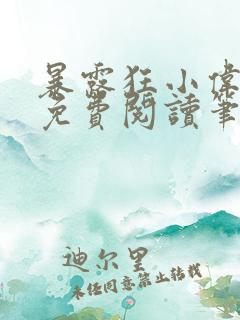 暴露狂小偉
免費閱讀筆
迪尔里
未任同意禁止转载